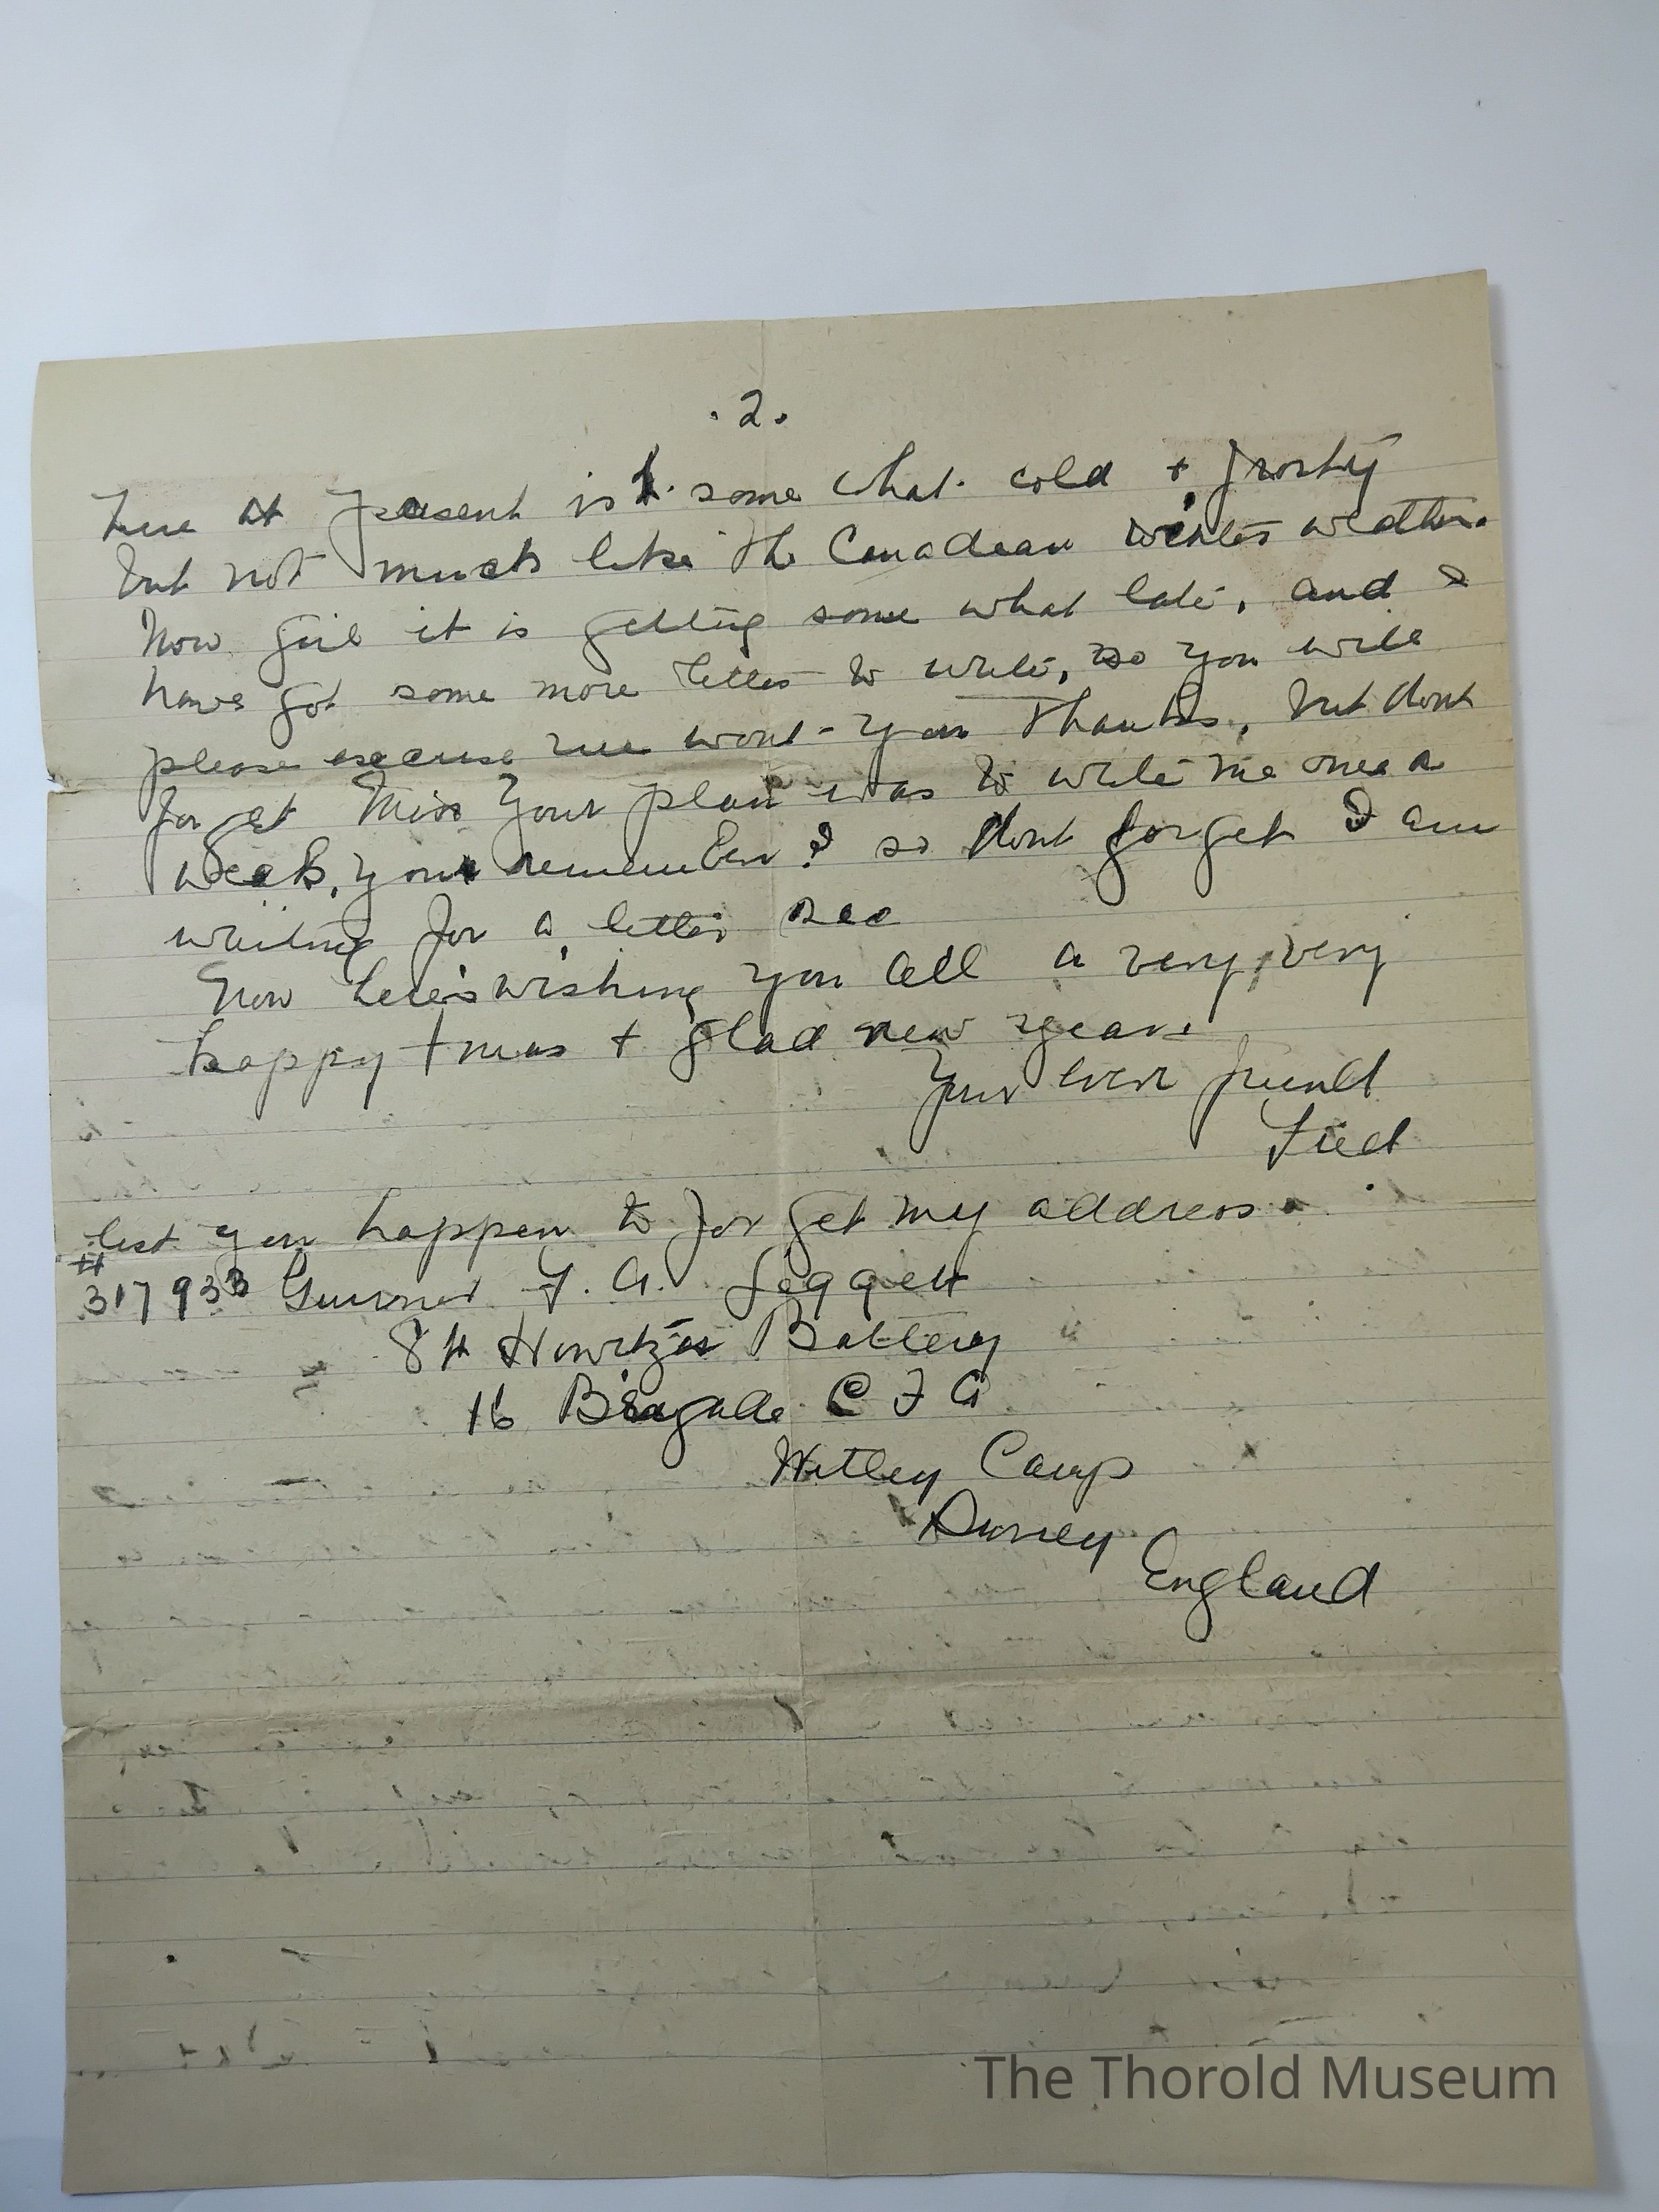 . 2 .
here at present is some what cold + frosty
but not much like the Canadian winter weather.
Now girl it is getting some what late, and I
have got some more letters to write, so you will
please excuse me wont you Thanks, but dont
forget Miss Your plan was to write me once a
week, you remember? so dont forget I am
waiting for a letter see
Now here's wishing you all a very, very
happy Xmas + glad new year.
Your ever friend
Fred
lest you happen to forget my address.
# 317933 Gunner F. A. Leggett
8th Howitzer Battery
16 Brigade C F A
Witley Camp
Surrey
England
The Thorold Museum